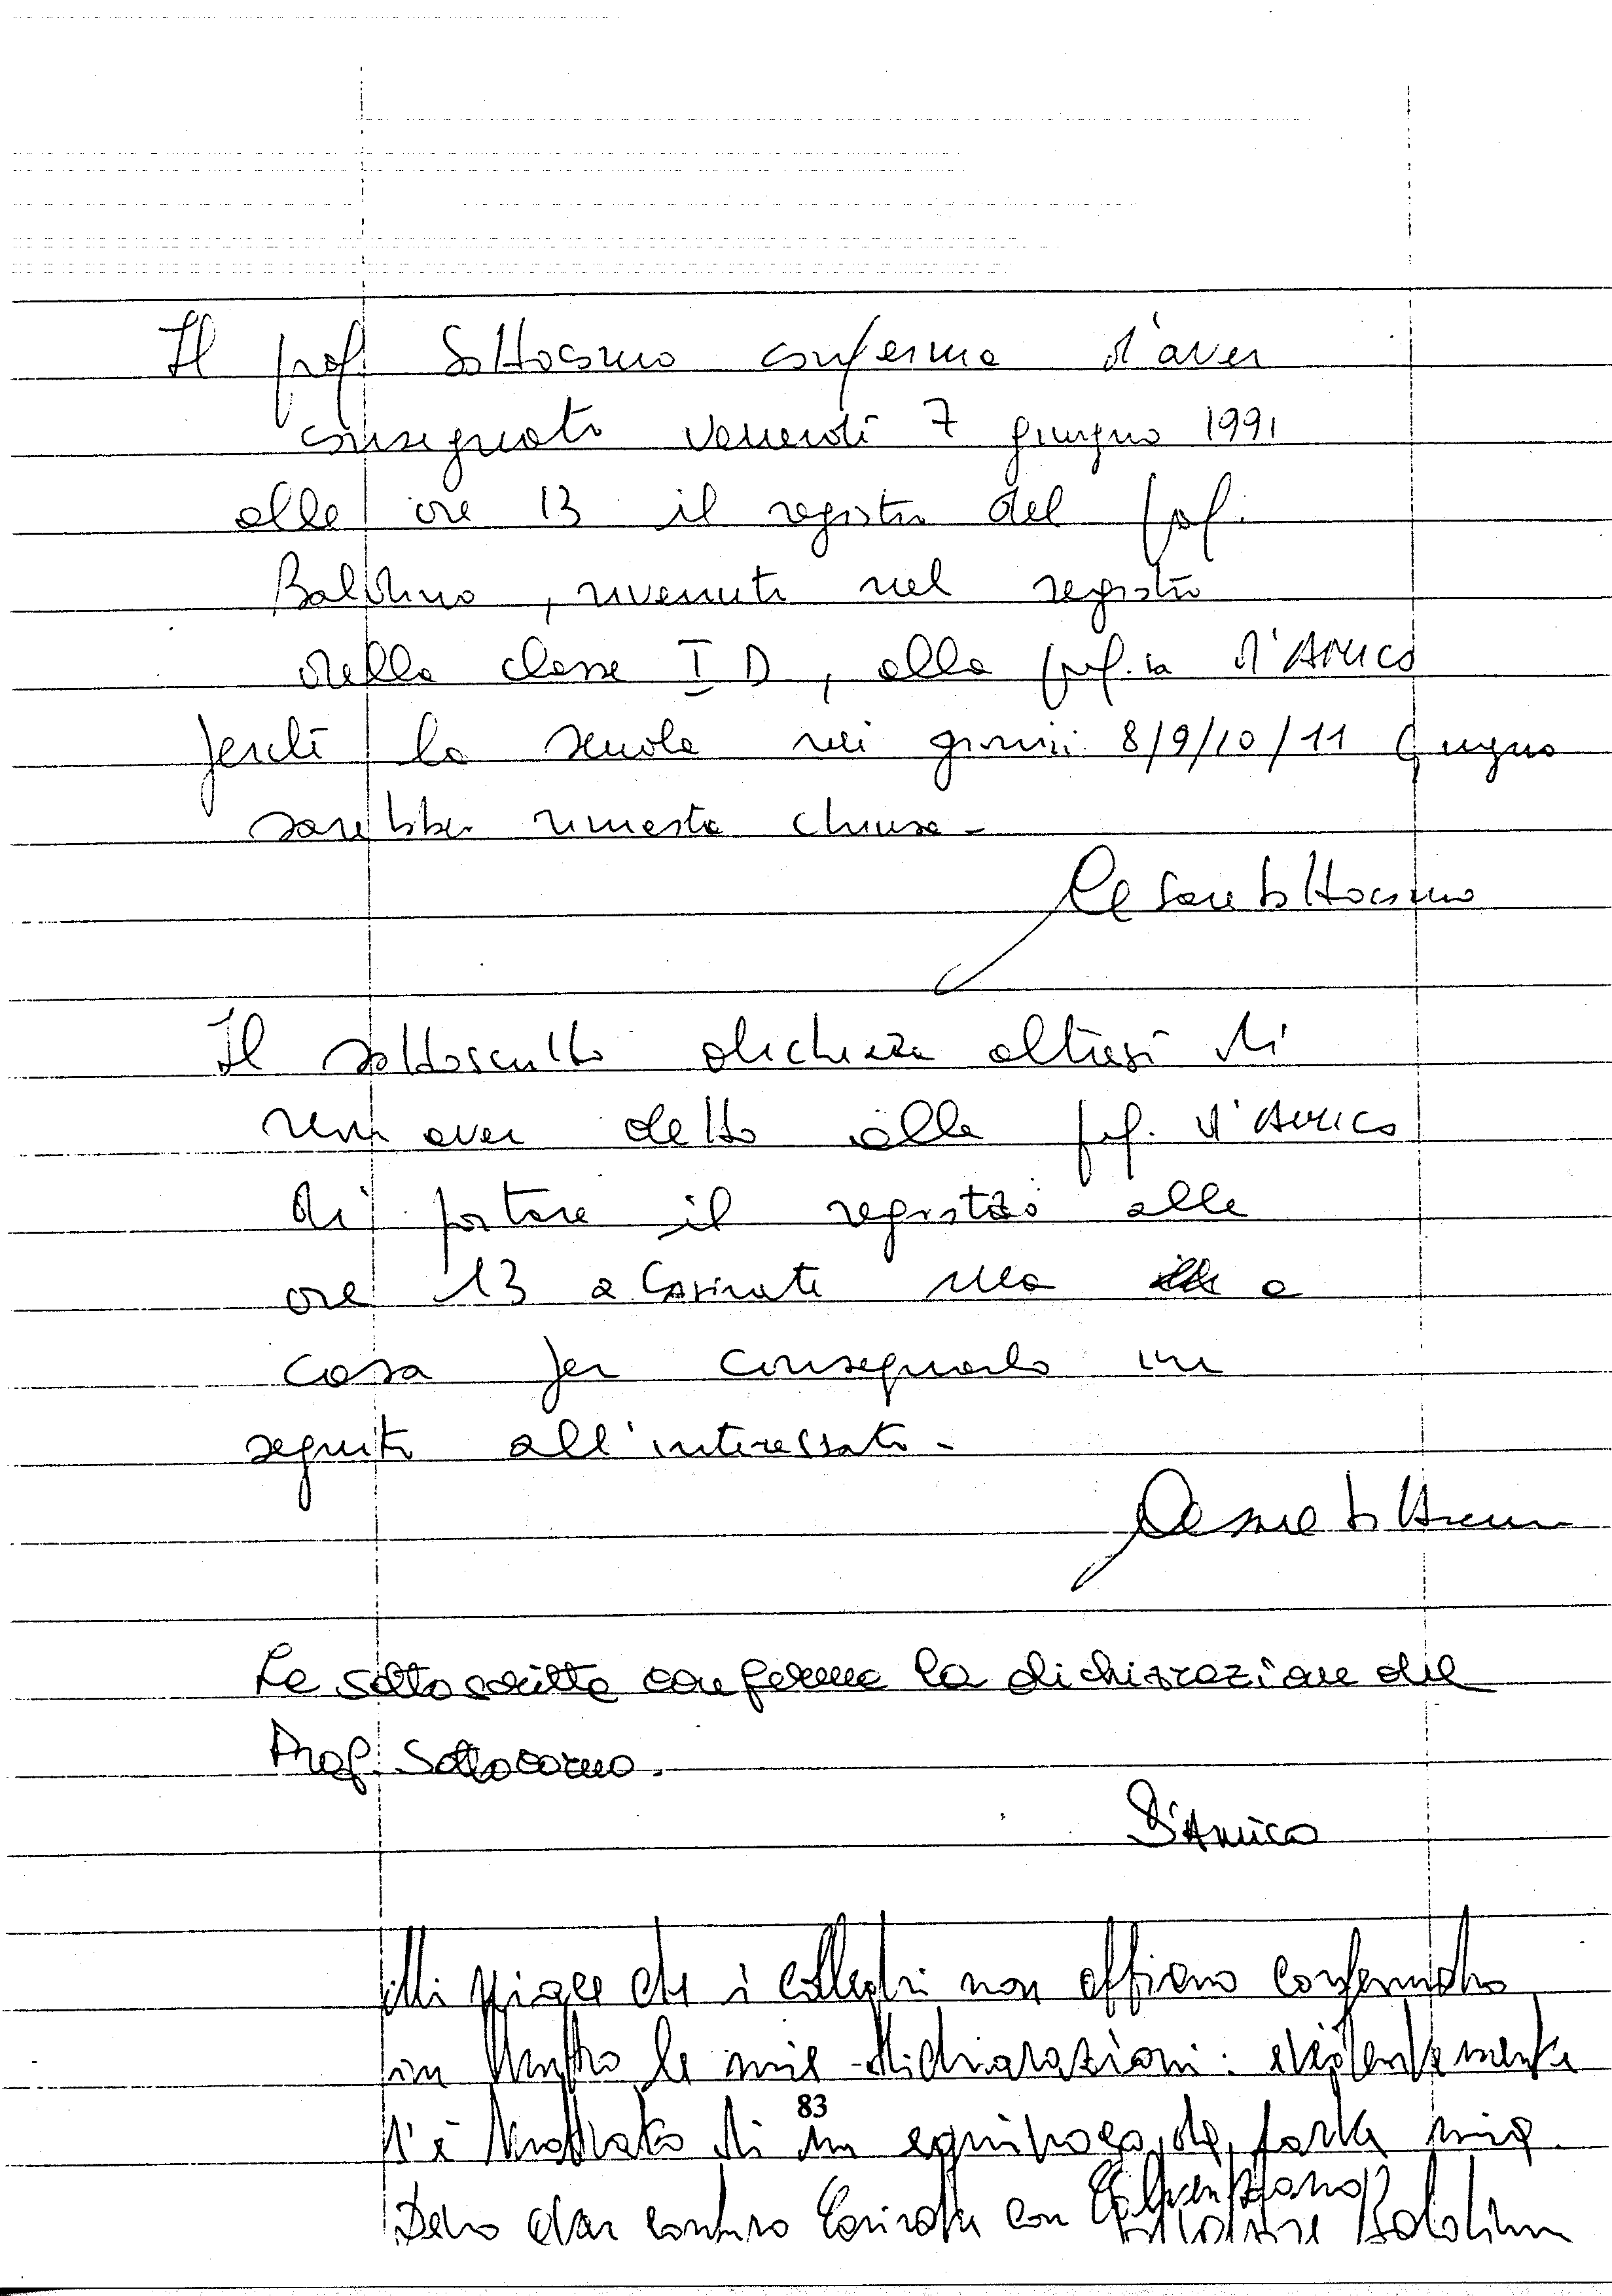 Il prof. Sottocorno conferma d'aver
consegnato venerdì 7 giugno 1991
alle ore 13 il registro del prof.
Baldino, rivenuto nel registro
della classe I D, alla prof.ssa d'Amico
perché la scuola nei giorni 8/9/10/11 Giugno
sarebbe rimasta chiusa -
Cesare Sottocorno
Il sottoscritto dichiara altresì di
non aver detto alla prof. d'Amico
di portare il registro alle
ore 13 a Casirate ma a
casa per consegnarlo in
seguito all'interessato -
Cesare Sottocorno
La sottoscritta conferma la dichiarazione del
Prof. Sottocorno.
D'Amico
Mi spiace che i colleghi non abbiano confermato
in tutto le mie dichiarazioni: evidentemente
s'è trattato di un equivoco, da parte mia.
83
Devo aver confuso Casirate con Calvenzano